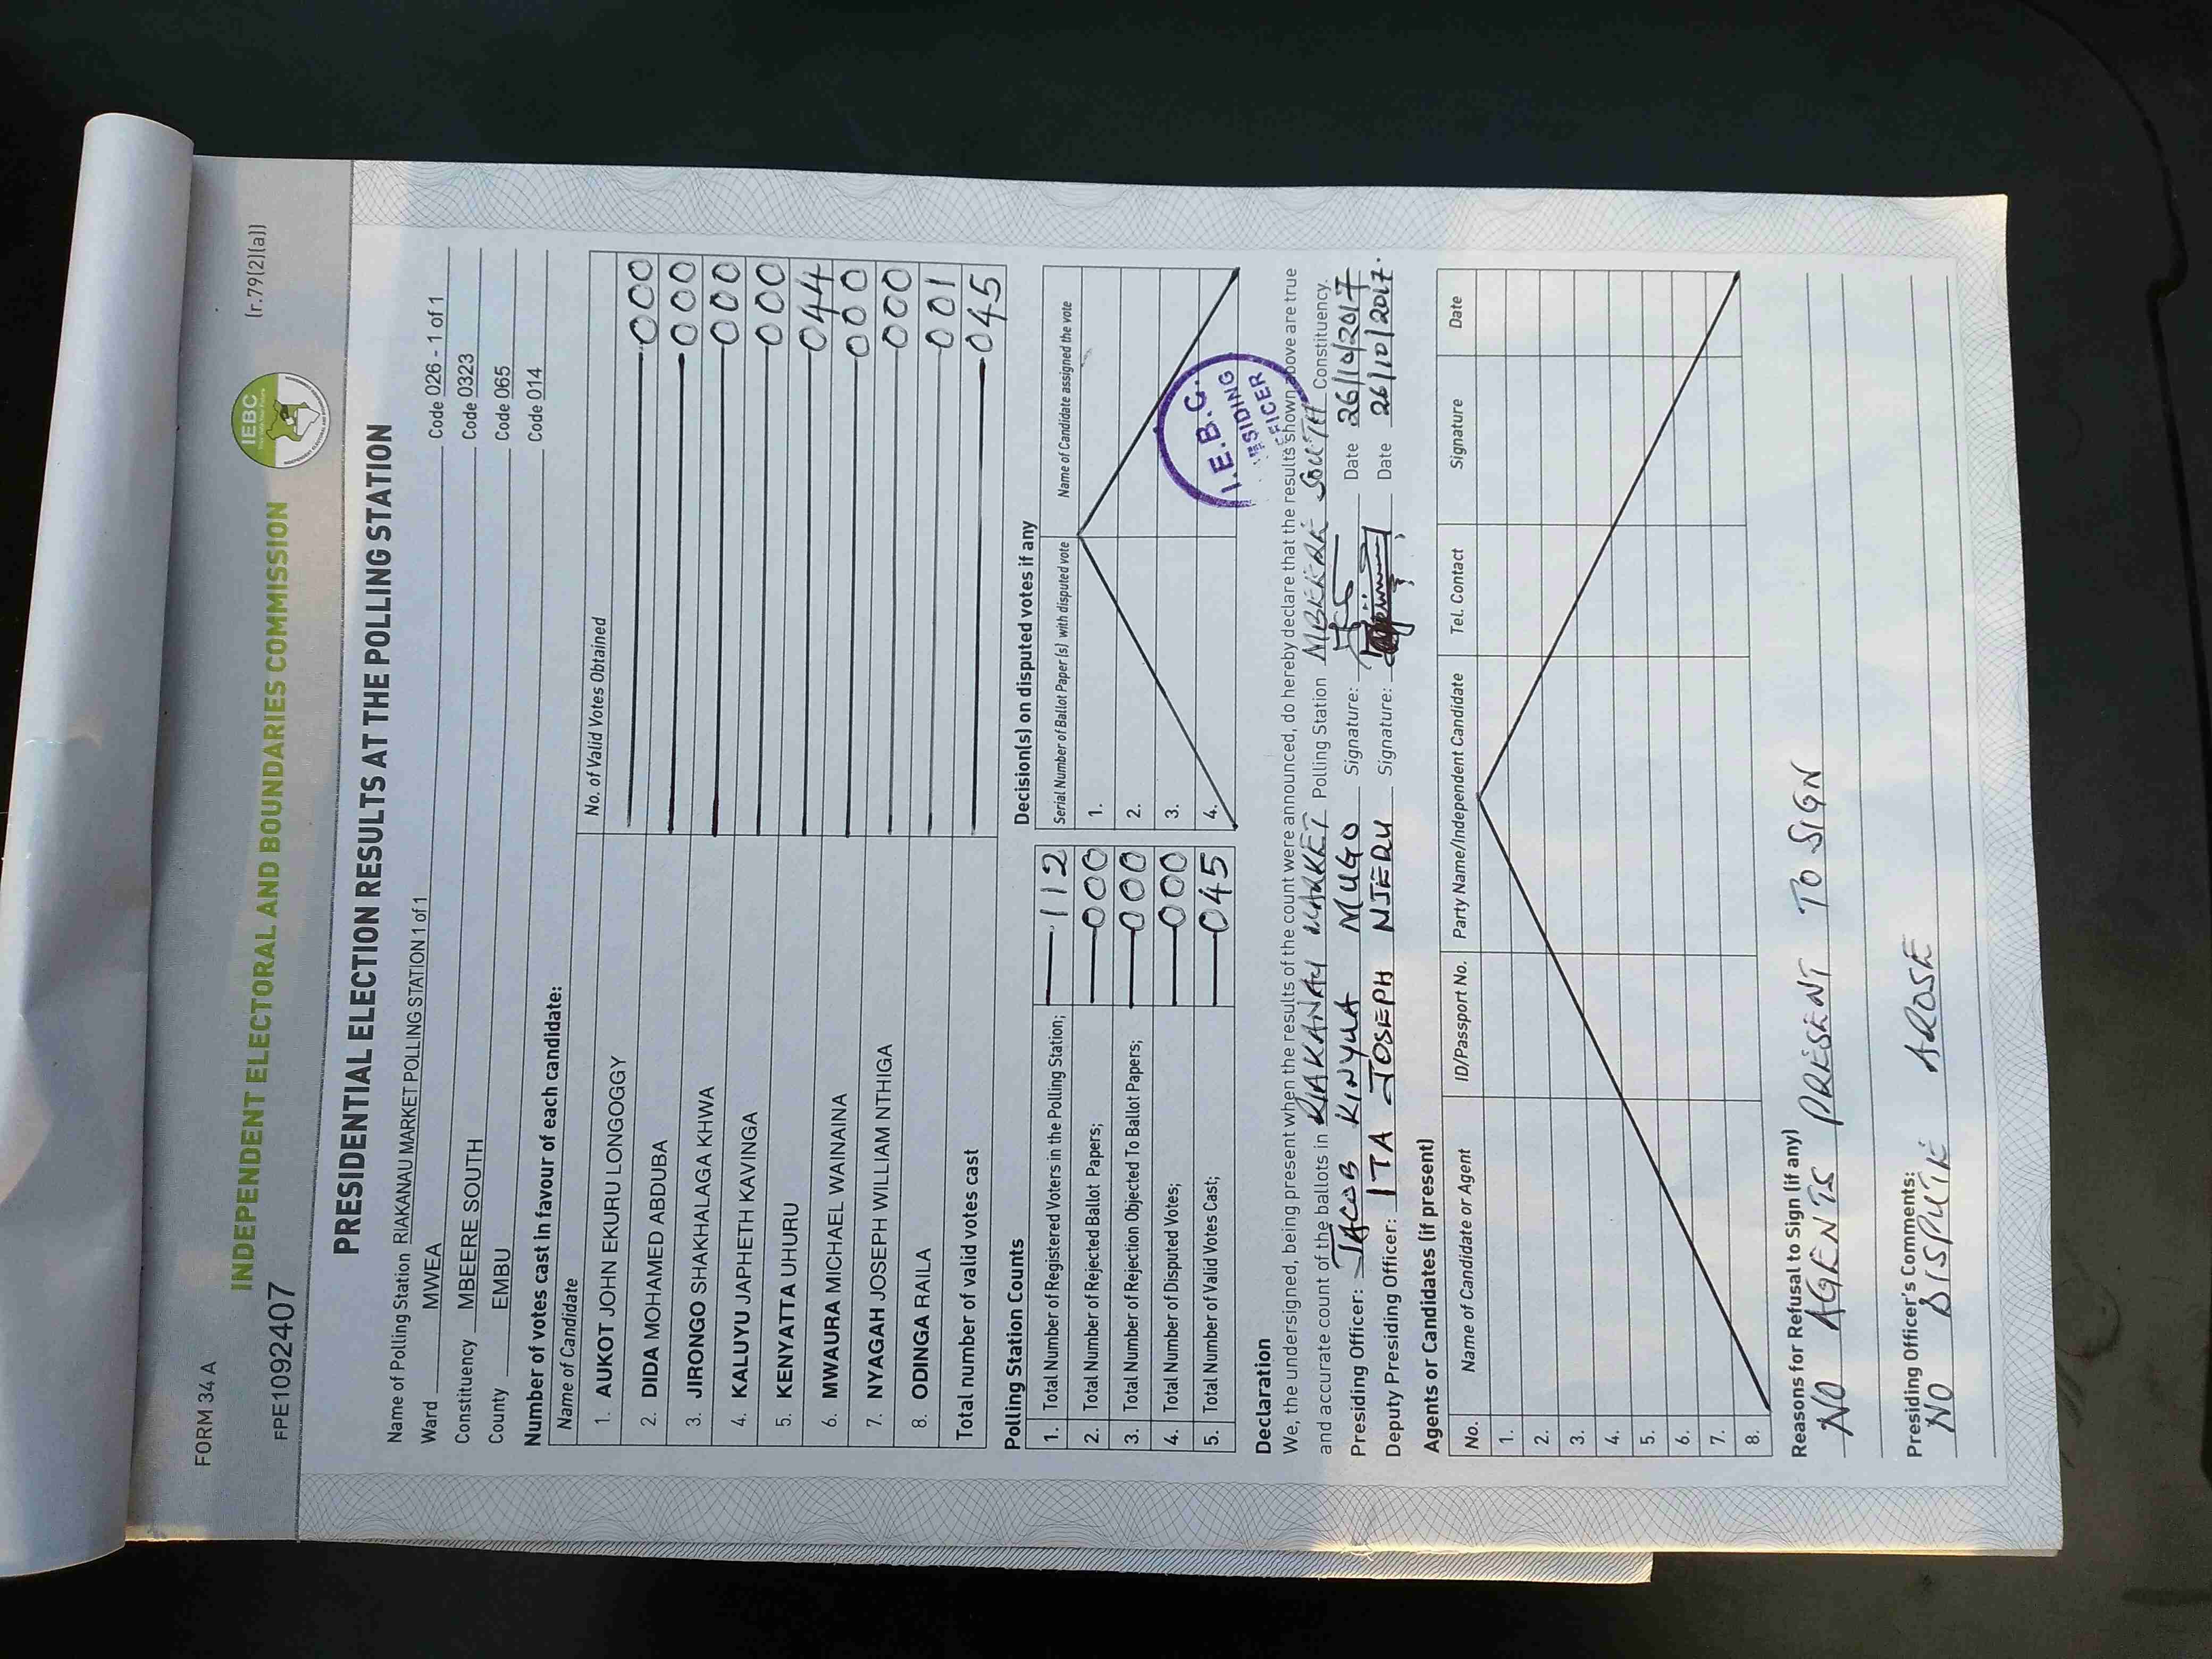 FORM 34 A
(r.79(2)(a))
INDEPENDENT ELECTORAL AND BOUNDARIES COMMISSION
IEBC
FPE1092407
PRESIDENTIAL ELECTION RESULTS AT THE POLLING STATION
Name of Polling Station RIAKANAU MARKET POLLING STATION 1 of 1 Code 026 - 1 of 1
Ward MWEA Code 0323
Constituency MBEERE SOUTH Code 065
County EMBU Code 014
Number of votes cast in favour of each candidate:
Name of Candidate No. of Valid Votes Obtained
1. AUKOT JOHN EKURU LONGOGGY 000
2. DIDA MOHAMED ABDUBA 000
3. JIRONGO SHAKHALAGA KHWA 000
4. KALUYU JAPHETH KAVINGA 000
5. KENYATTA UHURU 044
6. MWAURA MICHAEL WAINAINA 000
7. NYAGAH JOSEPH WILLIAM NTHIGA 000
8. ODINGA RAILA 001
Total number of valid votes cast 045
Polling Station Counts
1. Total Number of Registered Voters in the Polling Station; 112
2. Total Number of Rejected Ballot Papers; 000
3. Total Number of Rejection Objected To Ballot Papers; 000
4. Total Number of Disputed Votes; 000
5. Total Number of Valid Votes Cast; 045
Decision(s) on disputed votes if any
Serial Number of Ballot Paper (s) with disputed vote Name of Candidate assigned the vote
1.
2.
3.
4.
I.E.B.C.
PRESIDING
OFFICER
Declaration
We, the undersigned, being present when the results of the count were announced, do hereby declare that the results shown above are true
and accurate count of the ballots in RIAKANAU MARKET Polling Station MBEERE SOUTH Constituency.
Presiding Officer: JACOB KINYUA MUGO Signature: Date 26/10/2017
Deputy Presiding Officer: ITA JOSEPH NJERU Signature: Date 26/10/2017.
Agents or Candidates (if present)
No. Name of Candidate or Agent ID/Passport No. Party Name/Independent Candidate Tel. Contact Signature Date
1.
2.
3.
4.
5.
6.
7.
8.
Reasons for Refusal to Sign (if any)
NO AGENTS PRESENT TO SIGN
Presiding Officer's Comments:
NO DISPUTE AROSE